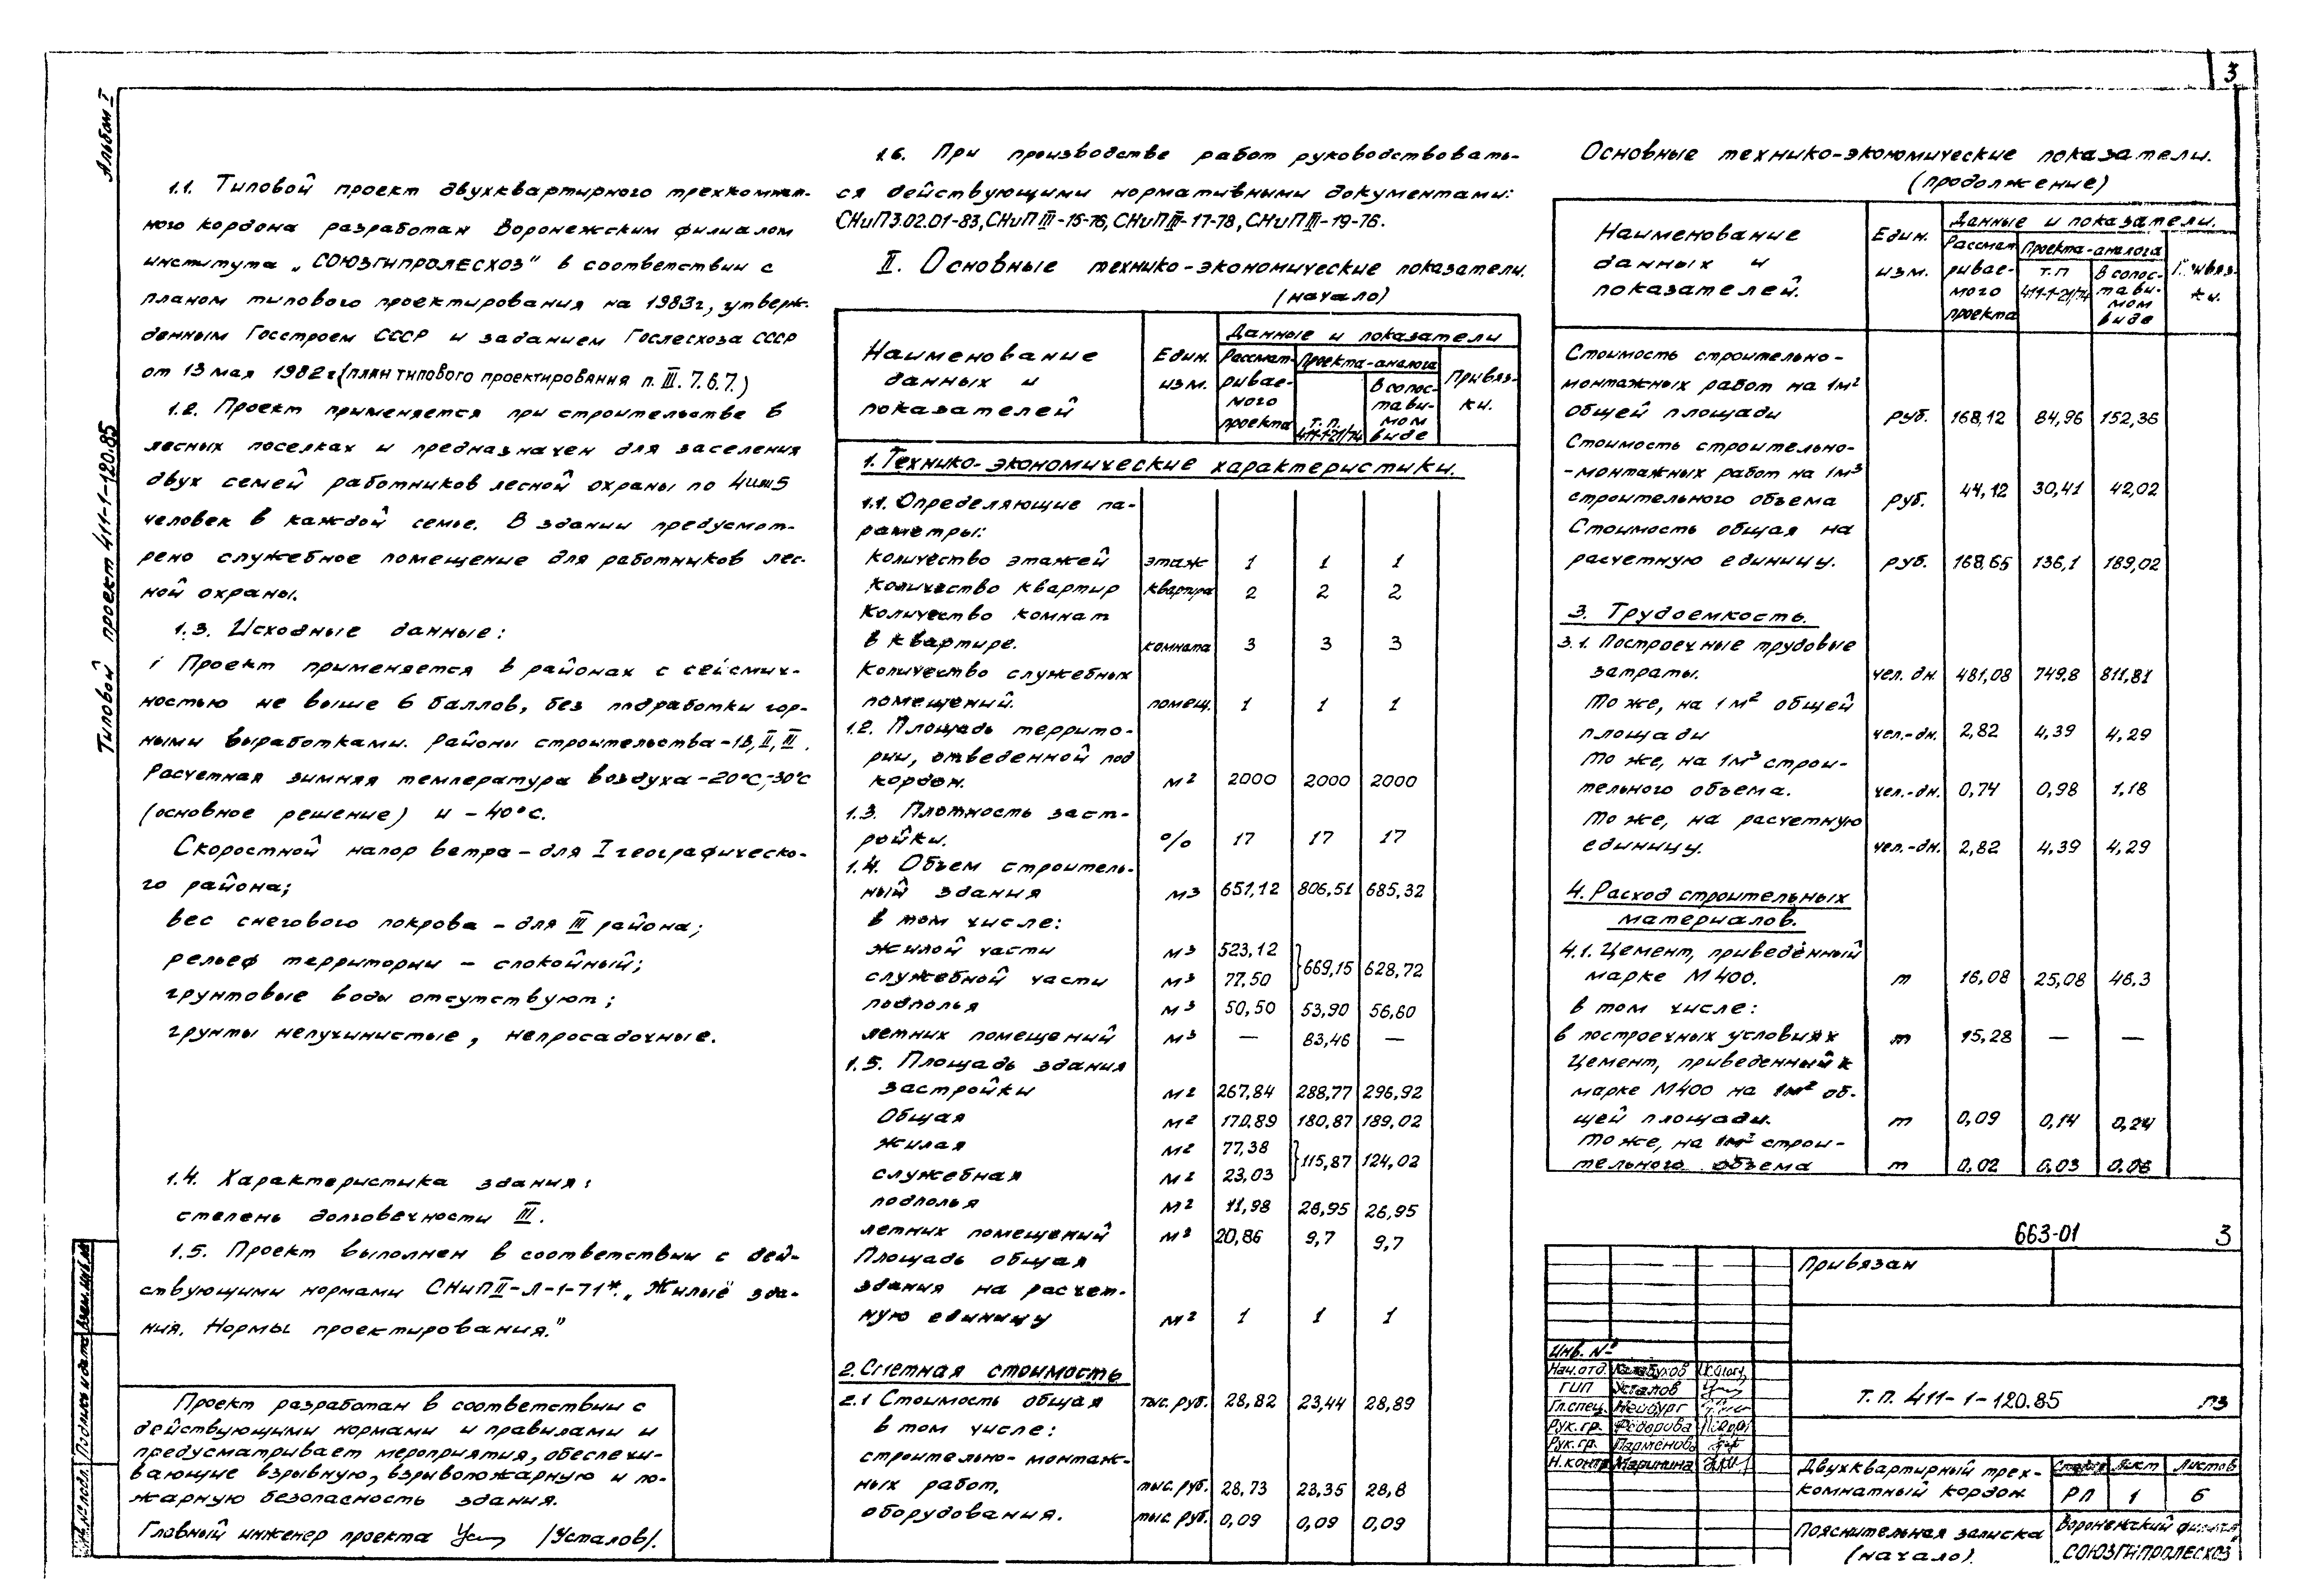 3
Альбом I
Типовой проект 411-1-120.85
1.1. Типовой проект двухквартирного трехкомнат-
ного кордона разработан Воронежским филиалом
института „СОЮЗГИПРОЛЕСХОЗ" в соответствии с
планом типового проектирования на 1983г, утверж-
денным Госстроем СССР и заданием Гослесхоза СССР
от 13 мая 1982г (план типового проектирования п. III. 7.6.7.)
1.2. Проект применяется при строительстве в
лесных поселках и предназначен для заселения
двух семей работников лесной охраны по 4или5
человек в каждой семье. В здании предусмот-
рено служебное помещение для работников лес-
ной охраны.
1.3. Исходные данные:
Проект применяется в районах с сейсмич-
ностью не выше 6 баллов, без подработки гор-
ными выработками. Районы строительства-1В, II, III.
Расчетная зимняя температура воздуха -20°С,-30°С
(основное решение) и -40°С.
Скоростной напор ветра-для I географическо-
го района;
вес снегового покрова - для III района;
рельеф территории - спокойный;
грунтовые воды отсутствуют;
грунты непучинистые, непросадочные.
1.4. Характеристика здания:
степень долговечности III.
1.5. Проект выполнен в соответствии с дей-
ствующими нормами СНиП II-Л-1-71*. „Жилые зда-
ния. Нормы проектирования."
Проект разработан в соответствии с
действующими нормами и правилами и
предусматривает мероприятия, обеспечи-
вающие взрывную, взрывопожарную и по-
жарную безопасность здания.
Главный инженер проекта /Усталов/.
Инв.№подл. Подпись и дата Взам.инв.№
1.6. При производстве работ руководствовать-
ся действующими нормативными документами:
СНиП3.02.01-83, СНиП III-15-76, СНиП III-17-78, СНиП III-19-76.
II. Основные технико-экономические показатели.
(начало)
Наименование данных и показателей Един. изм. Данные и показатели
Рассмат-риваемого проекта Проекта-аналога Привяз-ки.
т.п. 411-1-21/74 В сопос-тави-мом виде
1. Технико-экономические характеристики.
1.1. Определяющие па-
раметры:
Количество этажей этаж 1 1 1
Количество квартир квартира 2 2 2
Количество комнат
в квартире. комната 3 3 3
Количество служебных
помещений. помещ. 1 1 1
1.2. Площадь террито-
рии, отведенной под
кордон. м2 2000 2000 2000
1.3. Плотность заст-
ройки. % 17 17 17
1.4. Объем строитель-
ный здания м3 651,12 806,51 685,32
в том числе:
жилой части м3 523,12
служебной части м3 77,50 669,15 628,72
подполья м3 50,50 53,90 56,60
летних помещений м3 — 83,46 —
1.5. Площадь здания
застройки м2 267,84 288,77 296,92
Общая м2 170,89 180,87 189,02
жилая м2 77,38
служебная м2 23,03 115,87 124,02
подполья м2 11,98 26,95 26,95
летних помещений м2 20,86 9,7 9,7
Площадь общая
здания на расчет-
ную единицу м2 1 1 1
2. Сметная стоимость
2.1 Стоимость общая тыс.руб. 28,82 23,44 28,89
в том числе:
строительно-монтаж-
ных работ, тыс.руб. 28,73 23,35 28,8
оборудования. тыс.руб. 0,09 0,09 0,09
Основные технико-экономические показатели.
(продолжение)
Наименование данных и показателей. Един. изм. Данные и показатели.
Рассмат-риваемого проекта Проекта-аналога Привяз-ки.
т.п 411-1-21/74 В сопос-тави-мом виде
Стоимость строительно-
монтажных работ на 1м2
общей площади руб. 168,12 84,96 152,36
Стоимость строительно-
-монтажных работ на 1м3
строительного объема руб. 44,12 30,41 42,02
Стоимость общая на
расчетную единицу. руб. 168,65 136,1 189,02
3. Трудоемкость.
3.1. Построечные трудовые
затраты. чел. дн. 481,08 749,8 811,81
То же, на 1м2 общей
площади чел.-дн. 2,82 4,39 4,29
То же, на 1м3 строи-
тельного объема. чел.-дн. 0,74 0,98 1,18
То же, на расчетную
единицу. чел.-дн. 2,82 4,39 4,29
4. Расход строительных
материалов.
4.1. Цемент, приведённый
марке М400. т 16,08 25,08 46,3
в том числе:
в построечных условиях т 15,28 — —
Цемент, приведенный к
марке М400 на 1м2 об-
щей площади. т 0,09 0,14 0,24
То же, на 1м3 строи-
тельного объема т 0,02 0,03 0,06
663-01 3
Привязан
Инв. №
Нач.отд.
ГИП Усталов
Гл.спец. Нейбург
Рук.гр. Федорова
Рук.гр. Парменова
Н.контр Маринина
т.п. 411-1-120.85 ПЗ
Двухквартирный трех-
комнатный кордон.
Стадия Лист Листов
РП 1 6
Пояснительная записка
(начало).
Воронежский филиал
„СОЮЗГИПРОЛЕСХОЗ"